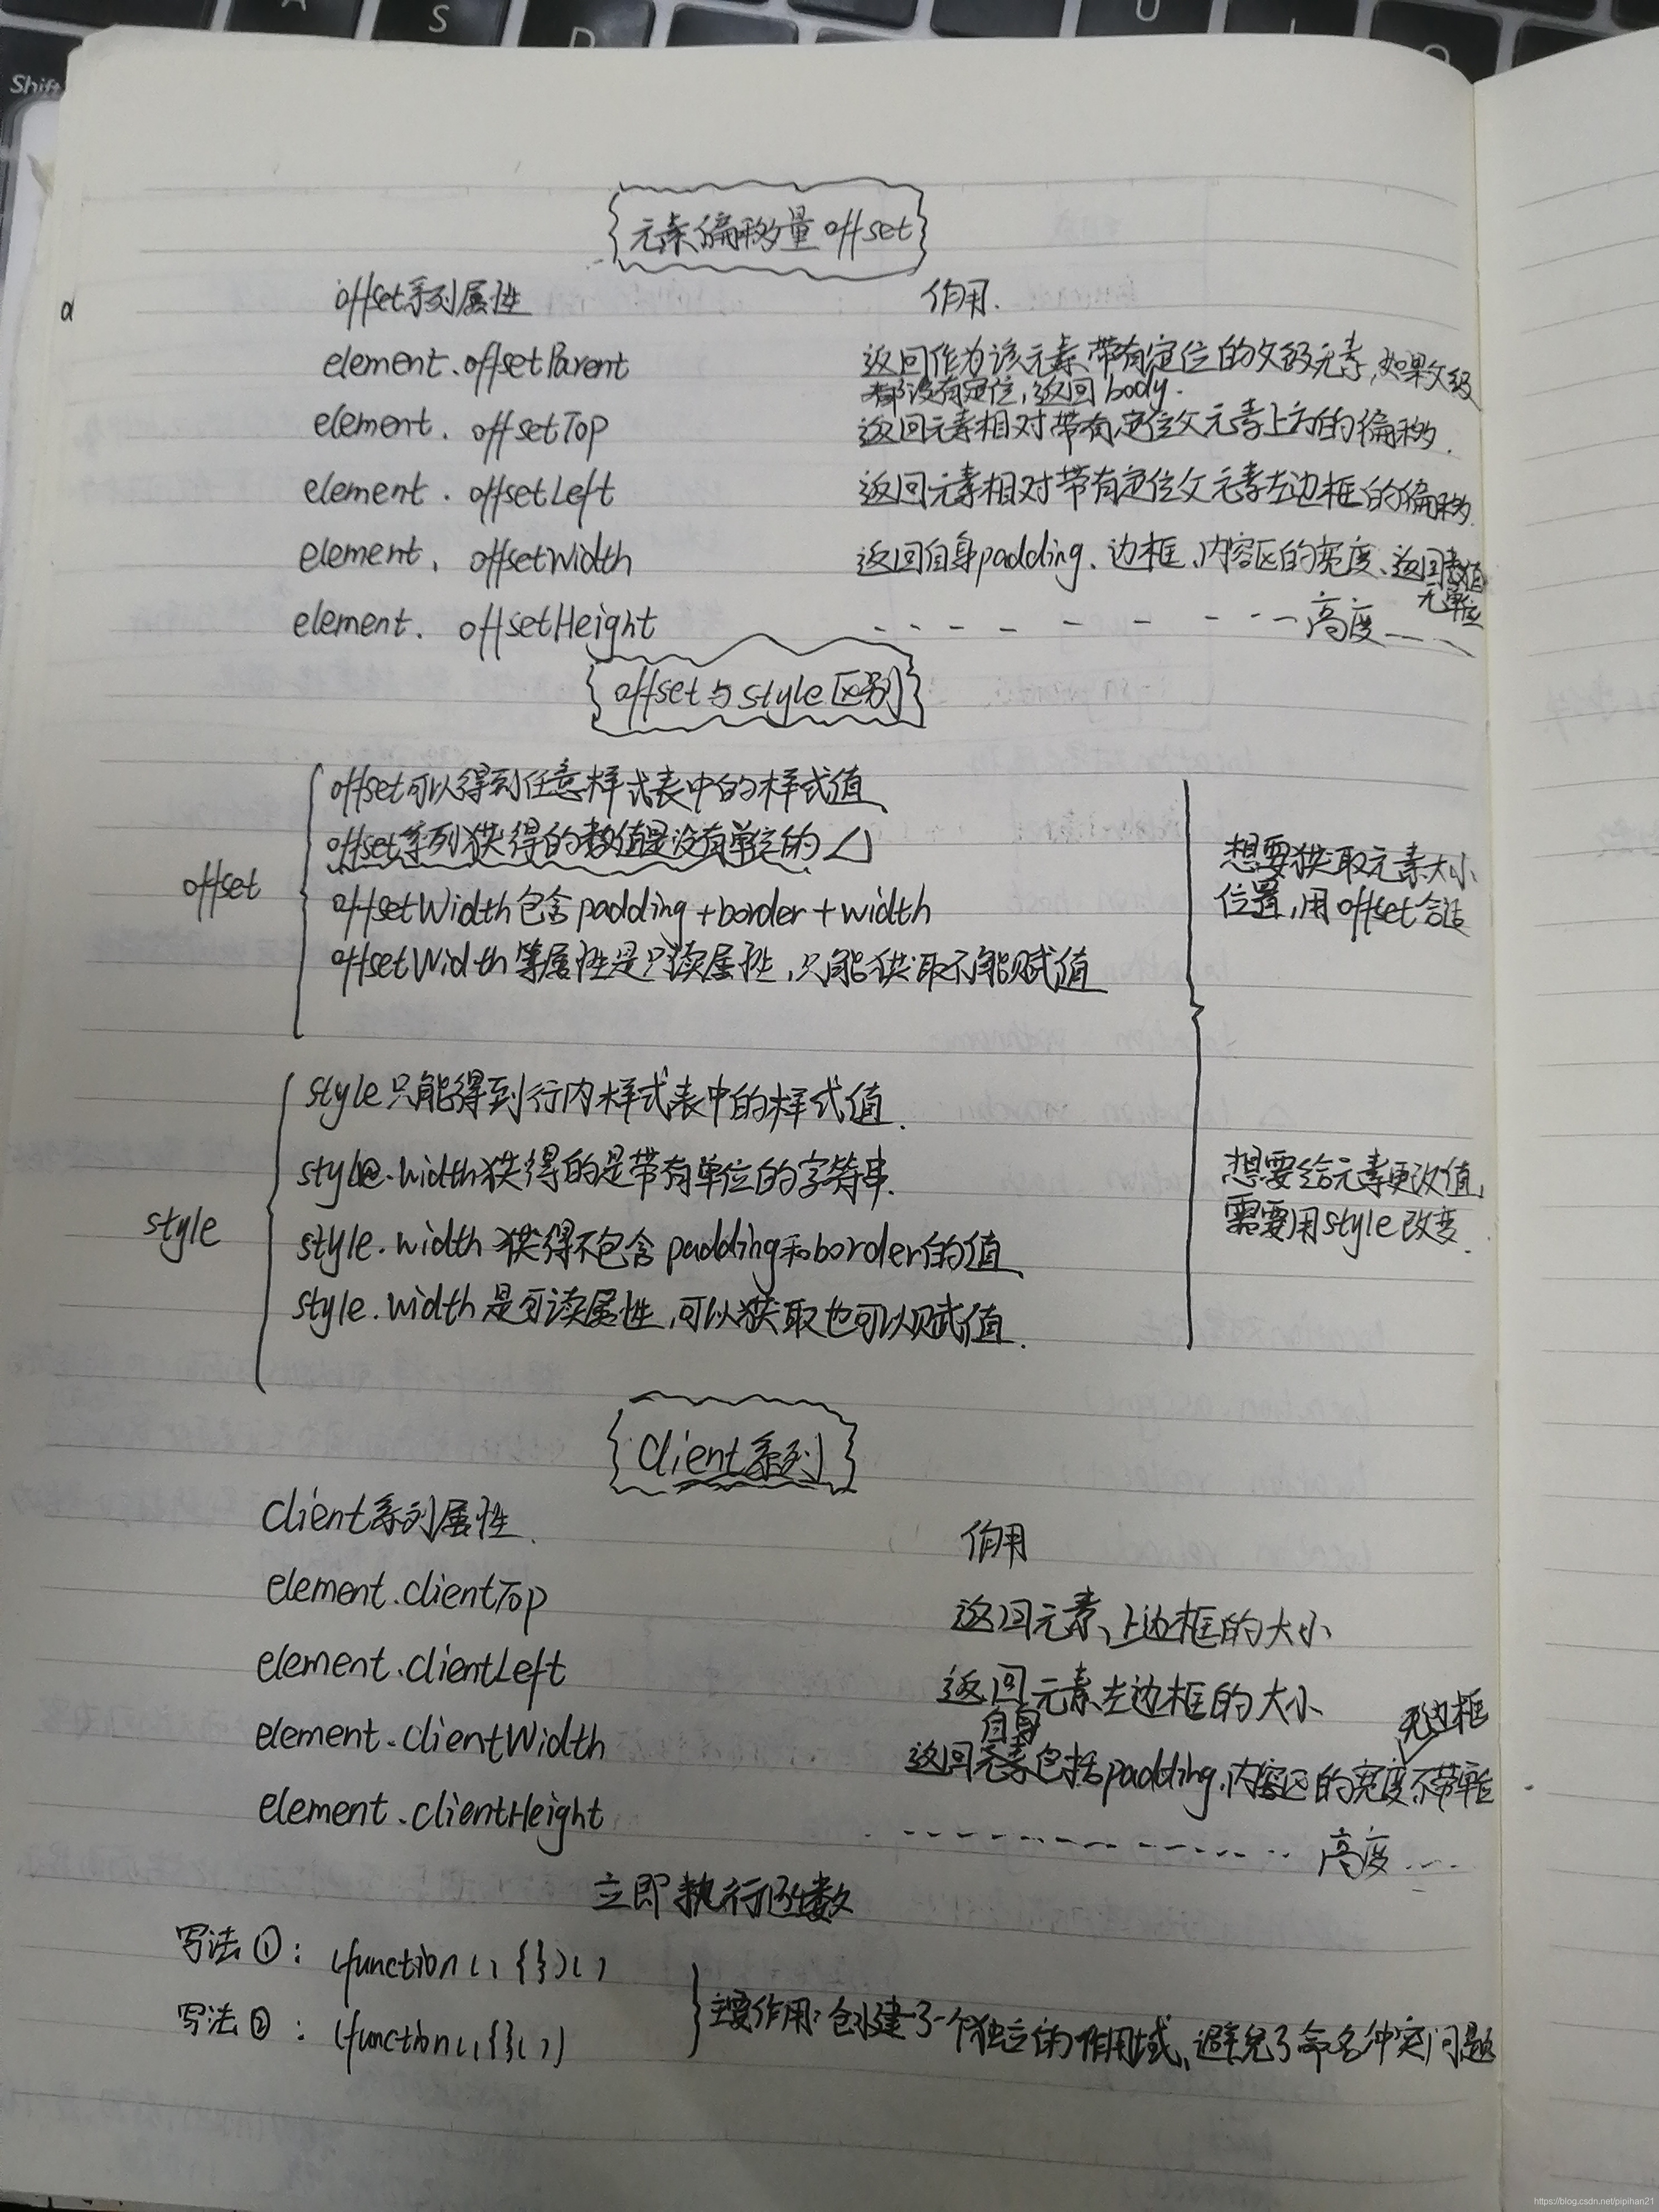 Shift
A
S
D
U
I
O
元素偏移量offset
offset系列属性 作用.
element.offsetParent 返回作为该元素带有定位的父级元素,如果父级
都没有定位,返回body.
element.offsetTop 返回元素相对带有定位父元素上方的偏移.
element.offsetLeft 返回元素相对带有定位父元素左边框的偏移.
element.offsetWidth 返回自身padding、边框、内容区的宽度、返回数值
无单位
element.offsetHeight - - - - - - - - - 高度 - - -
offset与style区别
offset
offset可以得到任意样式表中的样式值
offset系列获得的数值是没有单位的
offsetWidth包含padding+border+width
offsetWidth等属性是只读属性,只能获取不能赋值
想要获取元素大小
位置,用offset合适
style
style只能得到行内样式表中的样式值.
style.width获得的是带有单位的字符串.
style.width获得不包含padding和border的值
style.width是可读属性,可以获取也可以赋值.
想要给元素更改值,
需要用style改变.
Client系列
Client系列属性 作用
element.clientTop 返回元素上边框的大小
element.clientLeft 返回元素左边框的大小
自身 无边框
element.clientWidth 返回元素包括padding、内容区的宽度,不带单位
element.clientHeight - - - - - - - - - - - - 高度 - - -
立即执行函数
写法①: (function(){})()
写法②: (function(){}())
主要作用:创建了一个独立的作用域、避免了命名冲突问题
https://blog.csdn.net/pipihan21